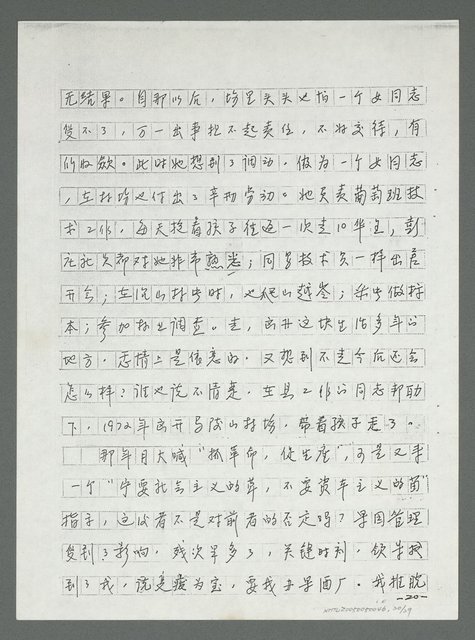 无结果。自那以后，场里头头也怕一个女同志
受不了，万一出事担不起责任，不好交待，有
所收敛。此时她想到了调动。做为一个女同志
，在林场也付出了辛勤劳动。她负责葡萄班技
术工作，每天抱着孩子往返一次走10华里，彭
社社员都对她非常熟悉；同男技术员一样出差
开会；在沉山林中时，也爬山越岭；采虫做标
本；参加林业调查。走，离开这块生活多年的
地方，感情上是倦恋的，又想到不走今后还会
怎么样？谁也说不清楚，在县工作的同志帮助
下，1972年离开马陵山林场，带着孩子走了。
那年月大喊“抓革命，促生产”，可是又来
一个“宁要社会主义的草，不要资本主义的苗”
指示，这后者不是对前者的否定吗？果园管理
受到了影响，残次果多了，关键时刻，领导找
到了我，说变废为宝，要我办果酒厂。我推脱
-20-